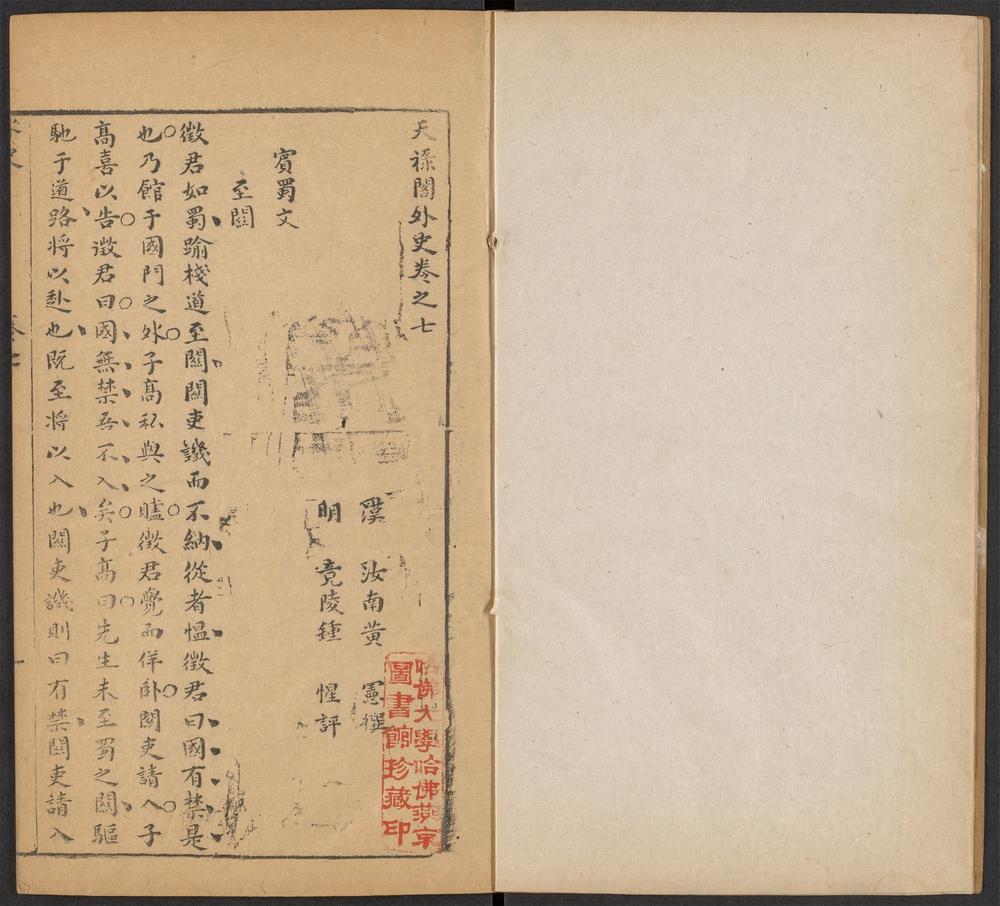 天祿閣外史卷之七
漢 汝南黃 憲撰
明 竟陵鍾 惺評
賓蜀文
至關
徵君如蜀踰棧道至關關吏譏而不納從者慍徵君曰國有禁是
也乃館于國門之外子高私與之贐徵君覺而佯卧關吏請入子
高喜以告徵君曰國無禁吾不入矣子高曰先生未至蜀之關驅
馳于道路將以赴也既至將以入也關吏譏則曰有禁關吏請入
哈佛大學哈佛燕京
圖書館珍藏印